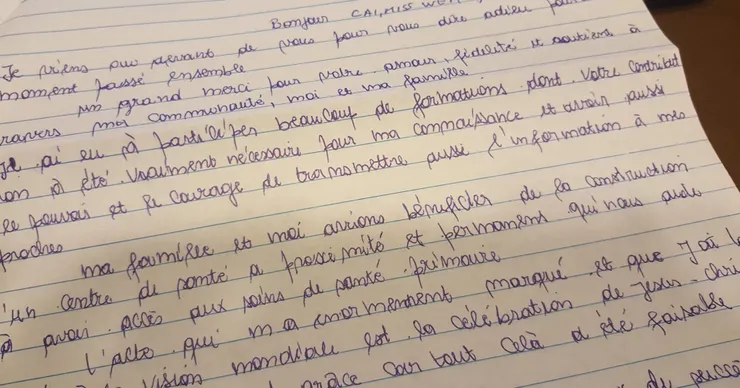 Bonjour CAI, MISS
Je viens au devant de vous pour vous dire adieu pour
moment passé ensemble
un grand merci pour votre amour, fidélité et soutiens à
ravers moi communauté, moi et ma famille
Je ai eu à participer beaucoup de formations dont votre contribut
ion a été vraiment nécessaire pour ma connaissance et avoir aussi
le pouvoir et le courage de transmettre aussi l'information à mes
proches
ma famille et moi avions bénéficier de la construction
d'un centre de santé a proximité et permanens qui nous aide
à avoir accès aux soins de santé primaire
l'acte qui m'a enormement marqué et que j'ai
Vision mondiale est la célébration de Jesus-Chri
grâce car tout celà a été faisable
de